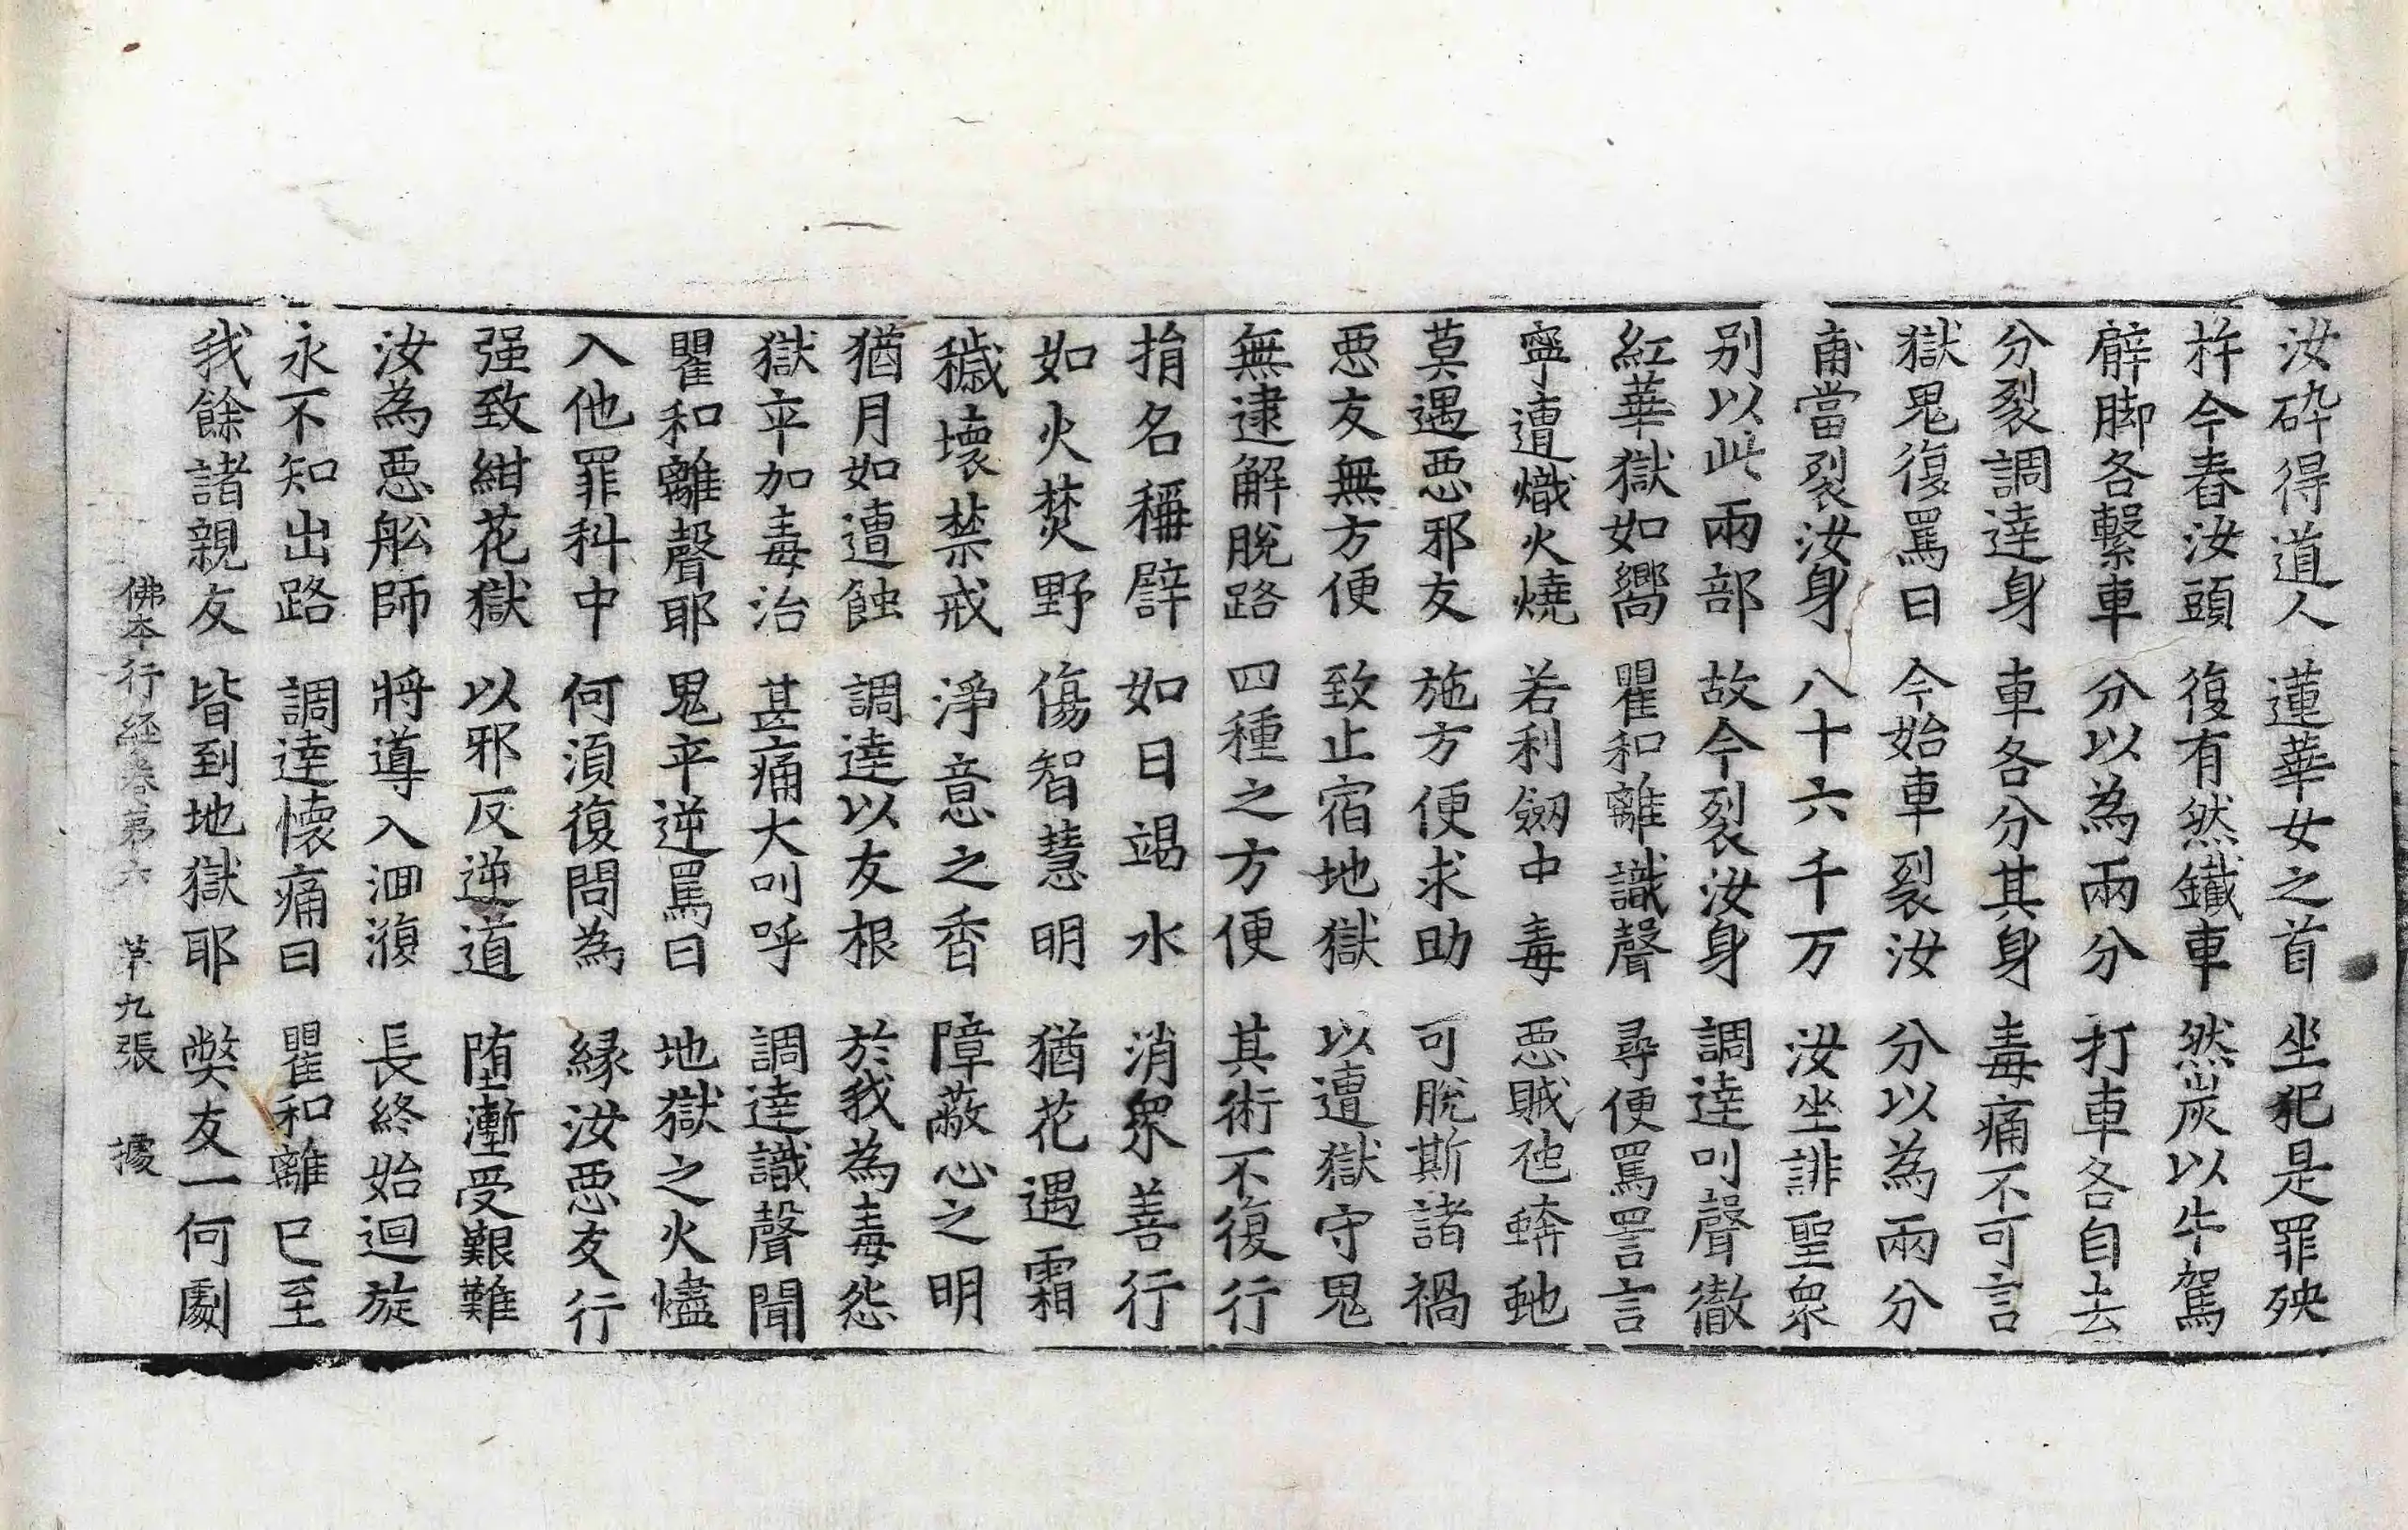 汝砕得道人 蓮華女之首 坐犯是罪殃
杵今舂汝頭 復有然鐵車 然炭以牛駕
臂脚各繫車 分以為兩分 打車各自去
分裂調達身 車各分其身 毒痛不可言
獄鬼復罵曰 今始車裂汝 分以為兩分
甫當裂汝身 八十六千万 汝坐誹聖衆
别以此兩部 故今裂汝身 調達叫聲徹
紅華獄如嚮 瞿和離識聲 尋便罵詈言
寧遭熾火燒 若利劒中毒 惡賊虵蟒虵
莫遇惡邪友 施方便求助 可脫斯諸禍
惡友無方便 致止宿地獄 以遭獄守鬼
無逮解脫路 四種之方便 其術不復行
捐名稱譬 如日竭水 消衆善行
如火焚野 傷智慧明 猶花遇霜
穢壞禁戒 淨意之香 障蔽心之明
猶月如遭蝕 調達以友根 於我為毒怨
獄卒加毒治 甚痛大叫呼 調達識聲聞
瞿和離聲耶 鬼卒逆罵曰 地獄之火燼
入他罪科中 何須復問為 縁汝惡友行
强致紺花獄 以邪反逆道 堕壍受艱難
汝為惡舩師 將導入洄澓 長終始迴旋
永不知出路 調達懷痛曰 瞿和離已至
我餘諸親友 皆到地獄耶 弊友一何劇
佛本行經卷第六 第九張 據